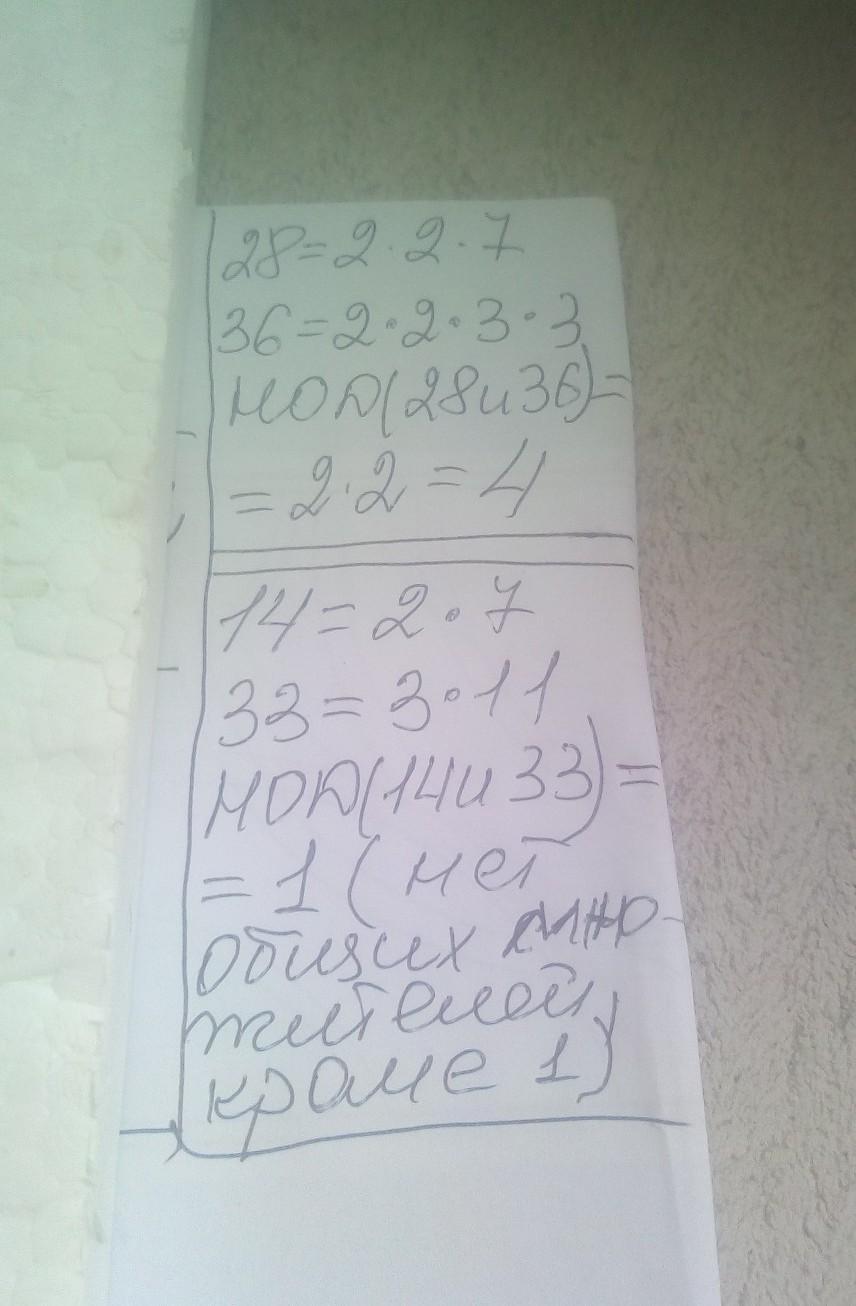 28=2·2·7
36=2·2·3·3
НОД(28и36)=
=2·2=4
14=2·7
33=3·11
НОД(14и33)=
=1 (нет
общих мно-
жителей,
кроме 1)